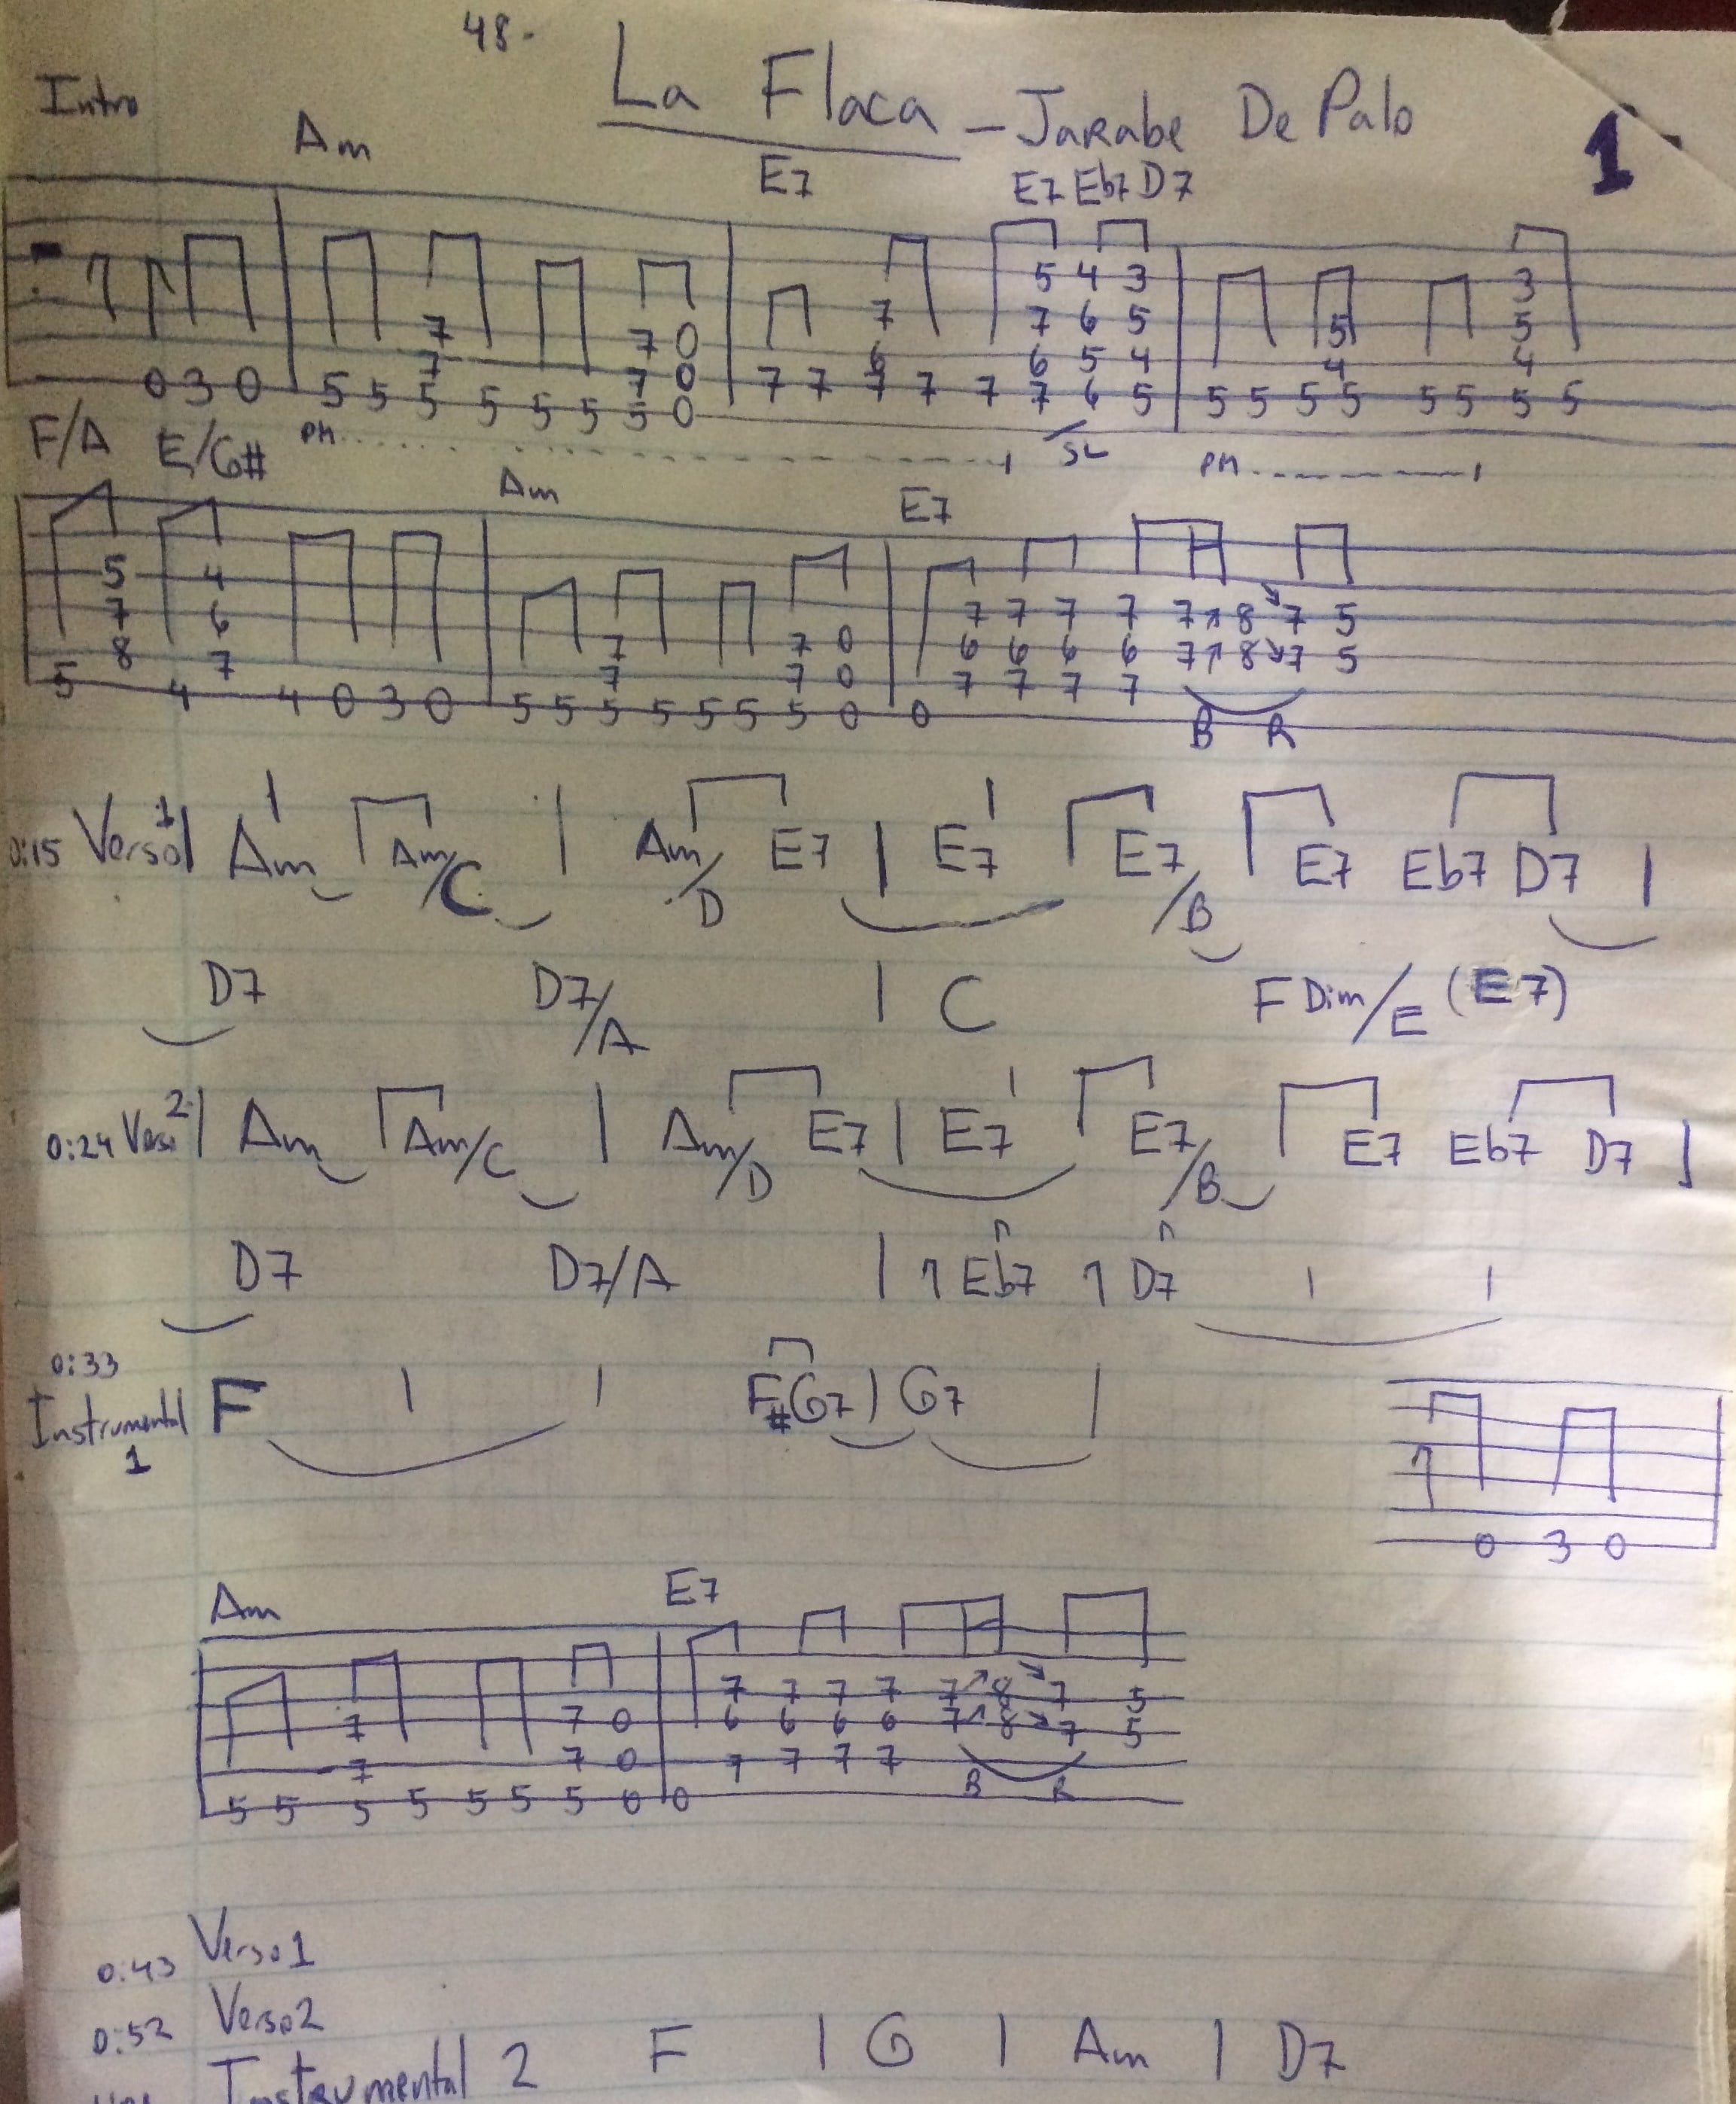 48.
La Flaca - Jarabe De Palo
1
Intro
Am E7 E7 Eb7 D7
5 4 3 3
7 7 6 5 5 5
7 7 0 6 6 5 4 4 4
7 7 0
0 3 0 5 5 5 5 5 5 5 0 7 7 7 7 7 7 6 5 5 5 5 5 5 5 5 5
PM SL PM
F/A E/G# Am E7
5 4
7 6 7 7 7 7 7 8 7 5
8 7 7 7 0 6 6 6 6 7 8 7 5
7 7 0 7 7 7 7
5 4 4 0 3 0 5 5 5 5 5 5 5 0 0
B R
0:15 Verso 1 | Am Am/C | Am/D E7 | E7 E7/B E7 Eb7 D7 |
D7 D7/A | C F Dim/E (E7)
0:24 Verso 2 | Am Am/C | Am/D E7 | E7 E7/B E7 Eb7 D7 |
D7 D7/A | Eb7 D7
0:33
Instrumental 1 F F# G7 | G7 |
0 3 0
Am E7
7 7 7 7 7 8 7 5
7 7 0 6 6 6 6 7 8 7 5
7 7 0 7 7 7 7
5 5 5 5 5 5 5 0 0
B R
0:43 Verso 1
0:52 Verso 2
Instrumental 2 F | G | Am | D7